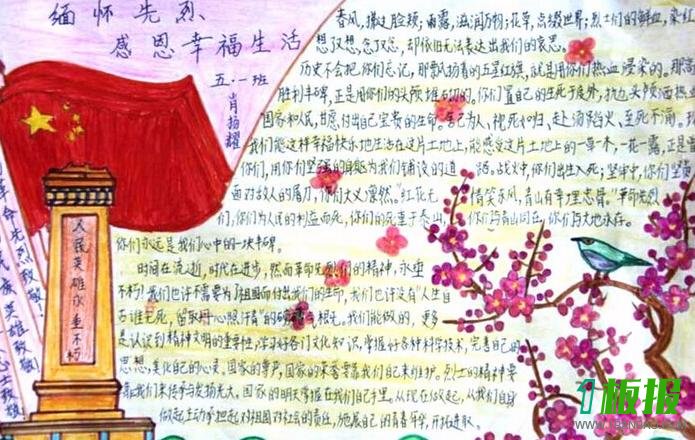 缅怀先烈
感恩幸福生活
五·一班
肖扬耀
春风，拂过脸颊，雨露，滋润万物；花草，点缀世界；烈士们的鲜血，染红
想又想，念又念，却依旧无法表达出我们的哀思。
历史不会把你们忘记，那飘扬着的五星红旗，就是用你们热血浸染的。那高
胜利丰碑，正是用你们的头颅堆砌的。你们置自己的生死于度外，抛头颅洒热血
国家和人民，甘愿付出自己宝贵的生命。舍己为人、视死如归、赴汤蹈火、至死不渝。
我们能这样幸福快乐地生活在这片土地上，能感受这片土地上的一草一木，一花一露，正是
你们，用你们坚强的身躯为我们铺设的道路。战火中，你们出生入死；牢中，你们坚贞
面对敌人的屠刀，你们大义凛然。“红花无情笑东风，青山有幸埋忠骨。”革命先烈
们，你们为人民的利益而死，你们的死重于泰山，你们与青山同在，你们与大地永存。
你们永远是我们心中的一块丰碑。
时间在流逝，时代在进步，然而革命先烈们的精神，永垂
不朽！我们也许不需要为了祖国而付出我们的生命，我们也许没有“人生自
古谁无死，留取丹心照汗青”的光。我们能做的，更多
是认识到精神文明的重要性，学习好各门文化知识，掌握好各种科学技术，完善自己的
思想，美化自己的心灵。国家的尊严，国家的荣誉靠我们自己来维护。烈士的精神要
靠我们来传承与发扬光大。国家的明天掌握在我们自己手里。从现在做起，从我们自身
做起主动承担起对祖国对社会的责任，施展自己的青春年华，开拓进取。
人民英雄永垂不朽
革命先烈致敬！
民族英雄致敬
士致敬
板报